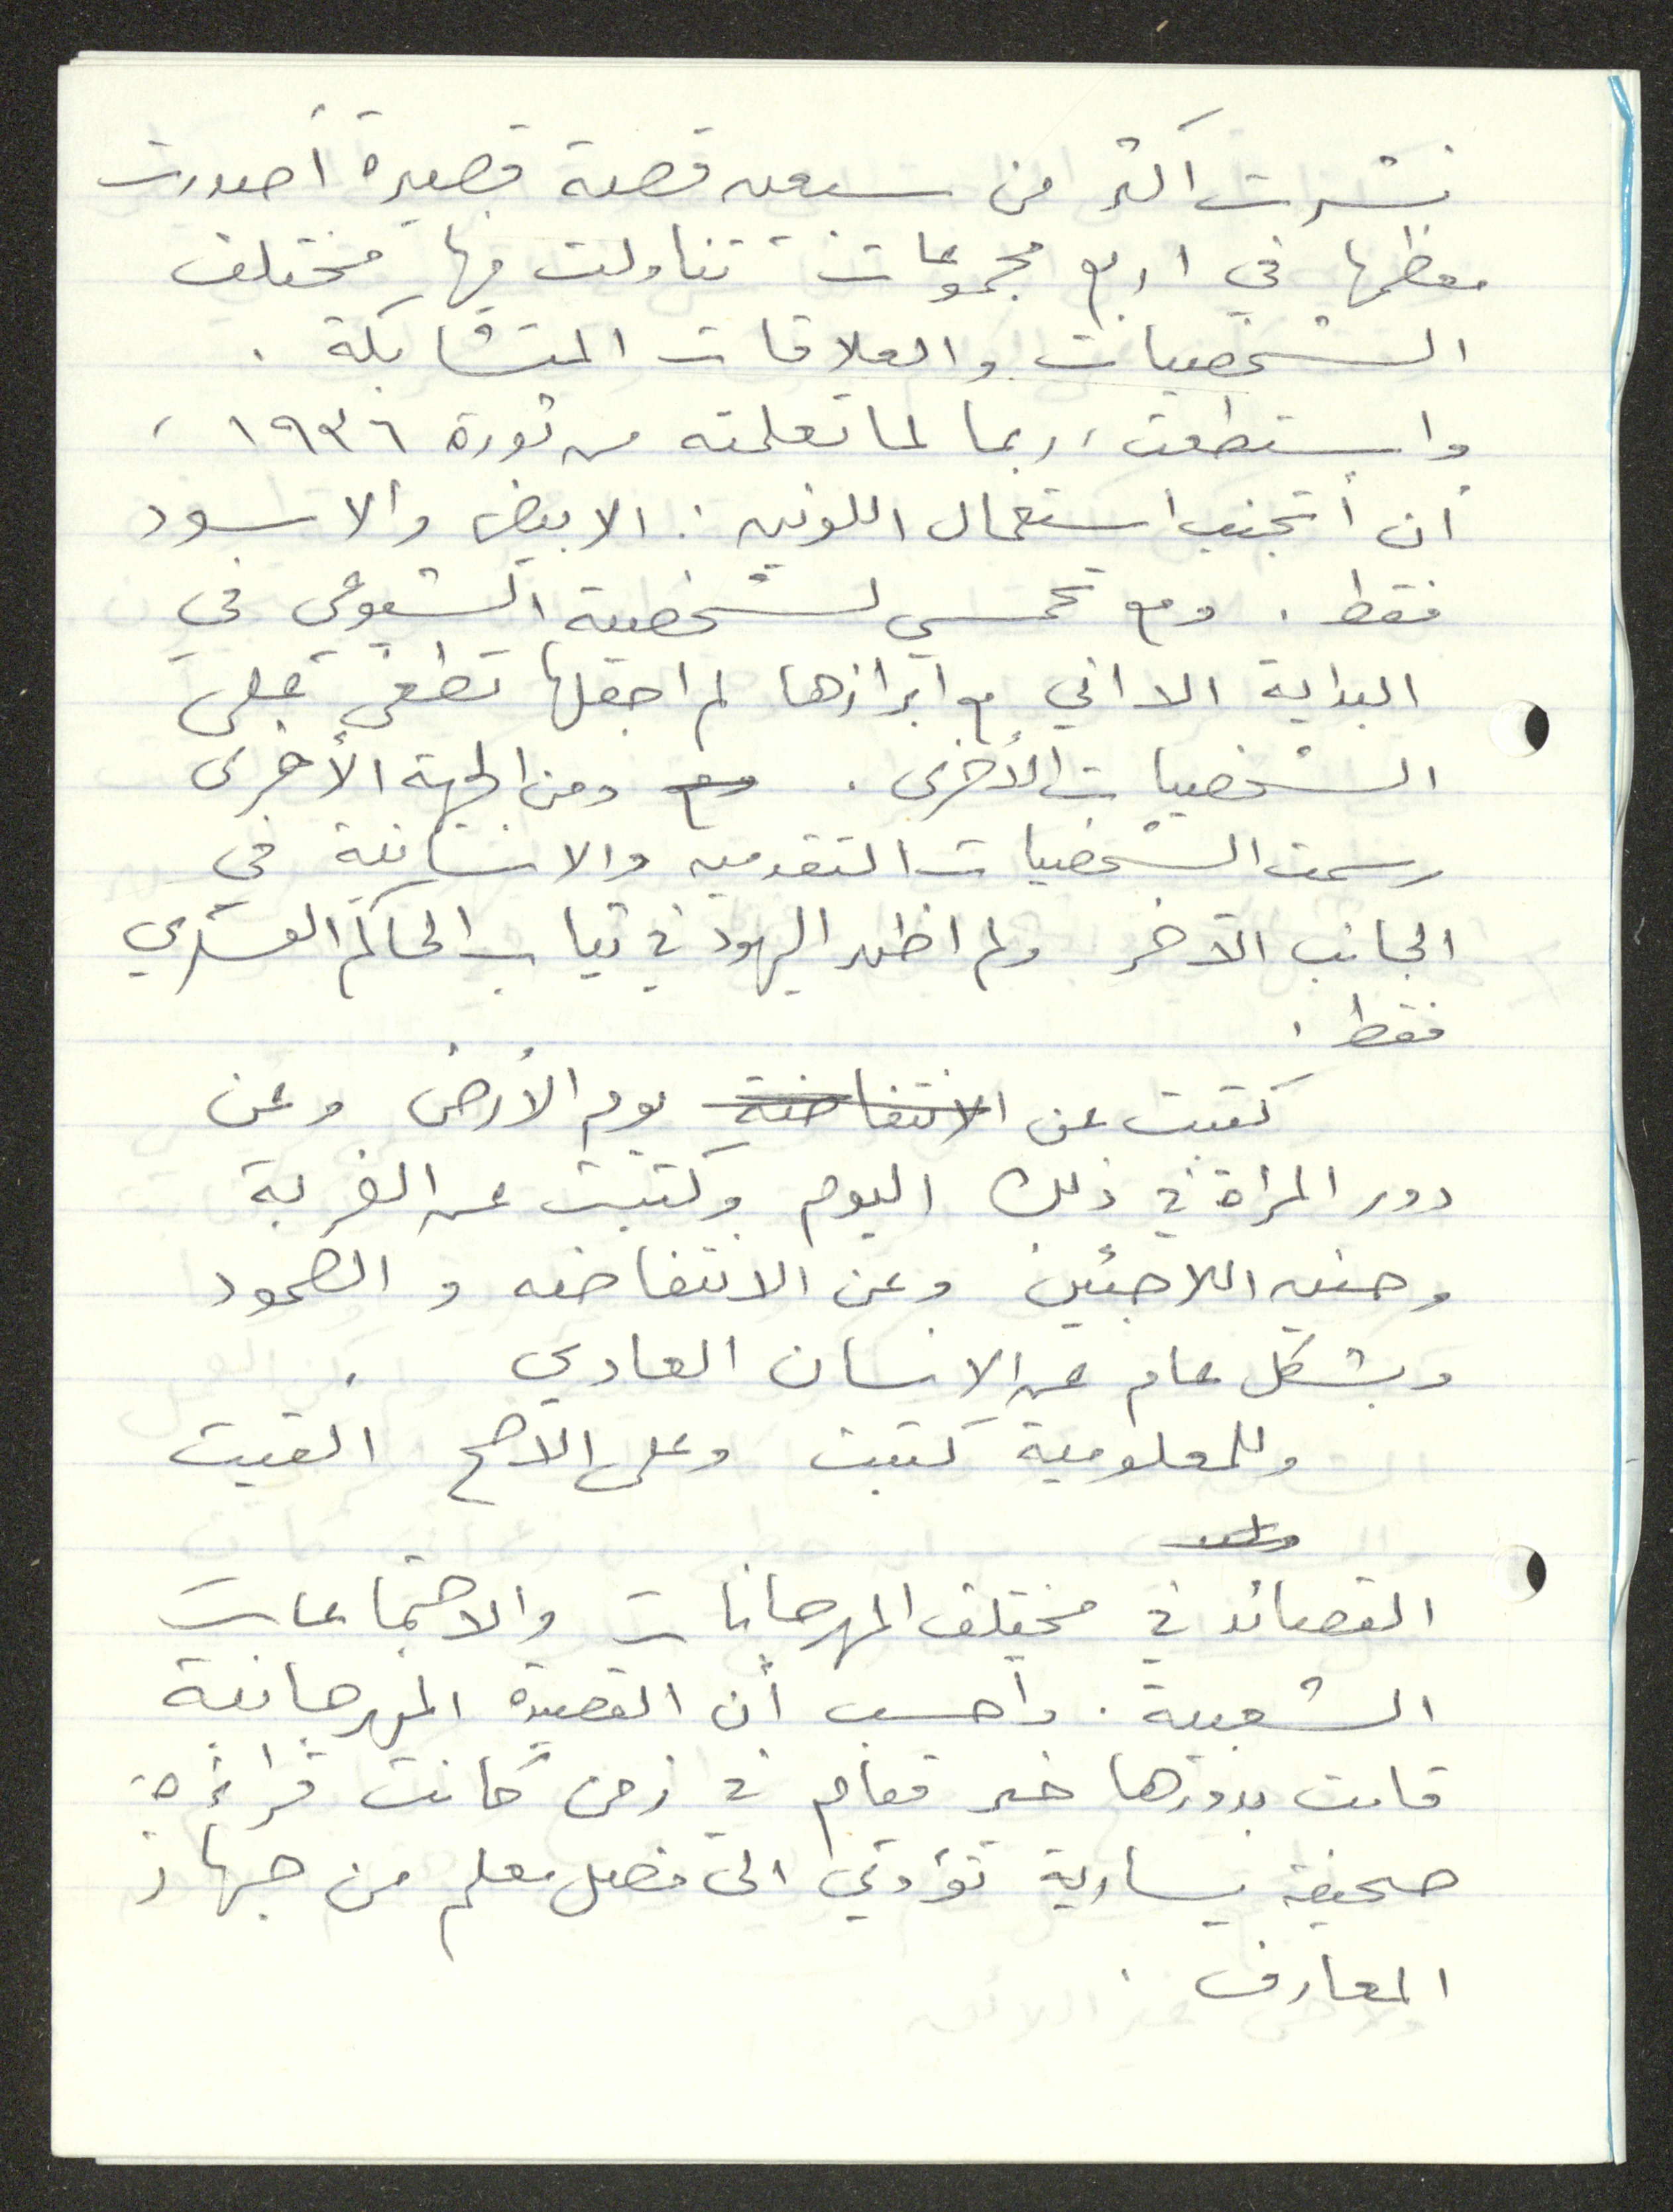 نشرت اكثر من سبعين قصة قصيرة أصدرت
معظمها في اربع مجموعات تناولت فيها مختلف
الشخصيات والعلاقات المتشابكة .
واستطعت، ربما لما تعلمته من ثورة ١٩٣٦،
أن أتجنب استعمال اللونين : الابيض والاسود
فقط . ومع تحمسي لشخصية الشيوعي في
البداية الا اني مع ابرازها لم اجعلها تطغى على
الشخصيات الأخرى . ومع ومن الجهة الأخرى
رسمت الشخصيات التقدميه والانسانية في
الجانب الآخر ولم اظهر اليهود في ثياب الحاكم العسكري
فقط .
كتبت عن الانتفاضة يوم الأرض وعن
دور المرأة في ذلك اليوم وكتبت عن الغربة
وحنين اللاجئين وعن الانتفاضه و الصمود
وبشكل عام عن الانسان العادي .
وللمعلومية كتبت وعلى الاصح القيت
القصائد في مختلف المهرجانات والاجتماعات
الشعبية . وأحسب أن القصيدة المهرجانية
قامت بدورها خير قيام في زمن كانت قراءة
صحيفة يسارية تؤدي الى فصل معلم من جهاز
المعارف .